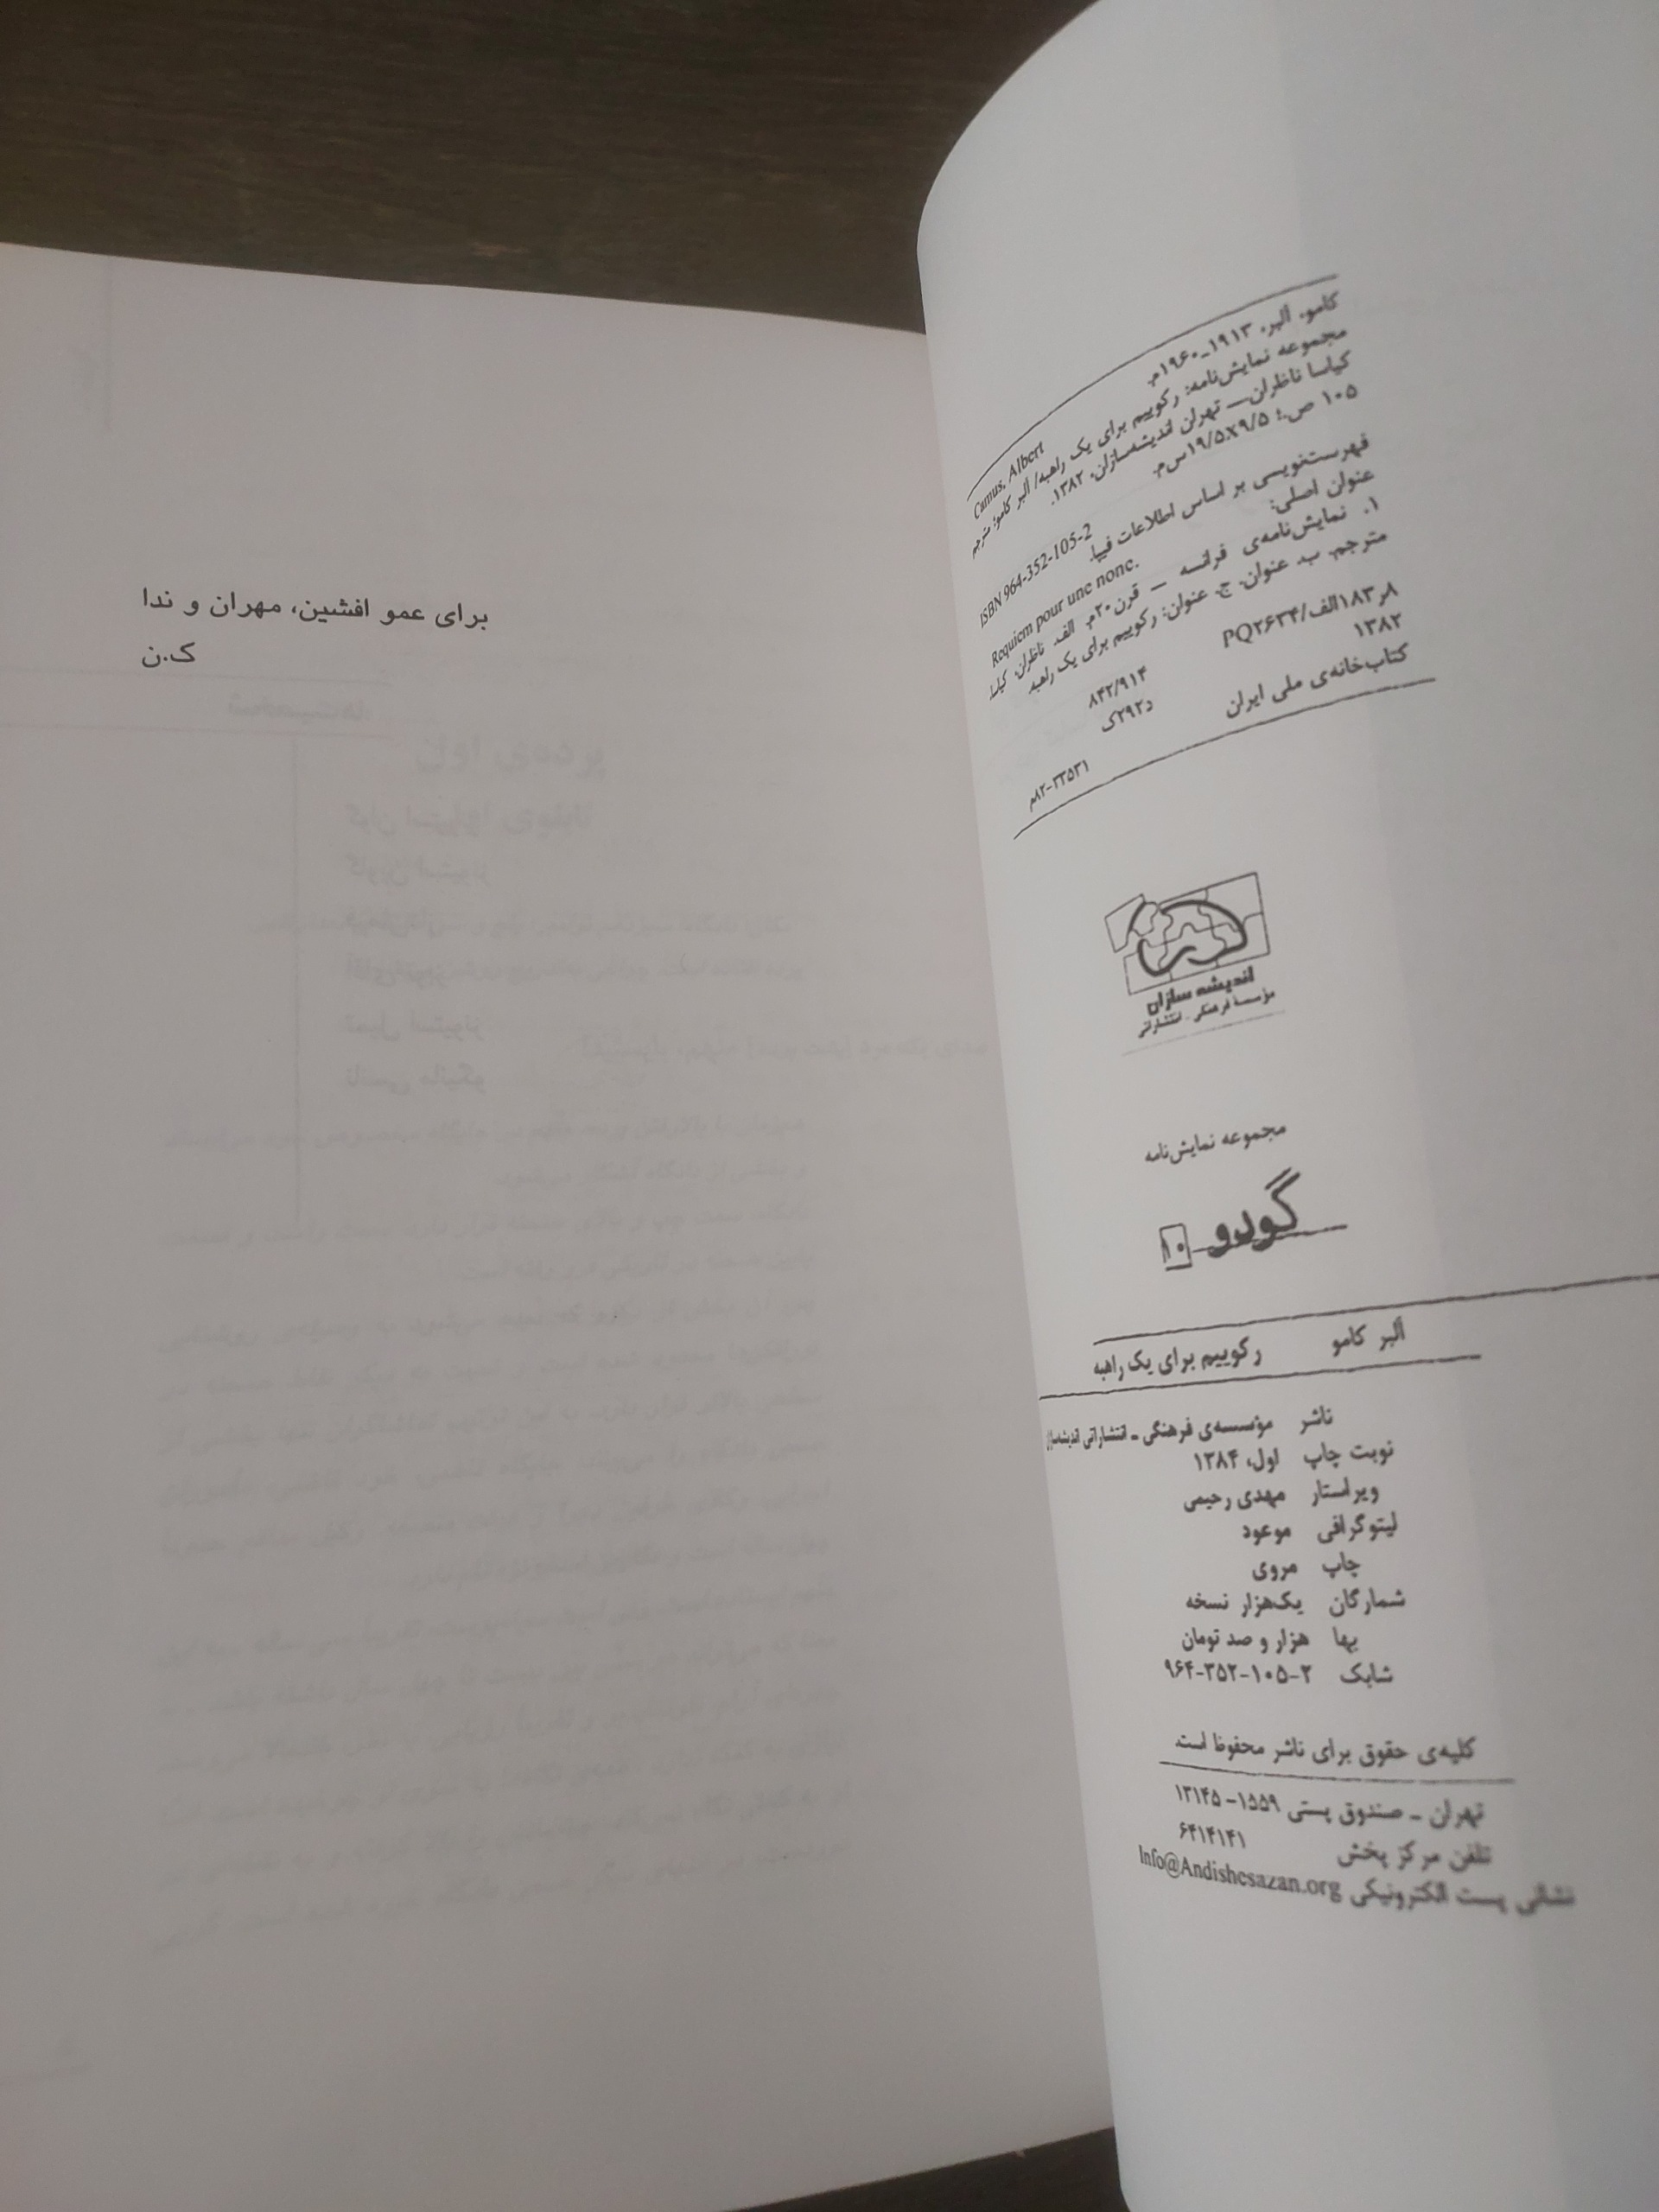 کامو، آلبر، ۱۹۱۳ـ۱۹۶۰م.
Camus, Albert
مجموعه نمایش‌نامه: رکوییم برای یک راهبه/ آلبر کامو؛ مترجم
کیاسا ناظران — تهران اندیشه‌سازان، ۱۳۸۲.
۱۰۵ ص.؛ ۱۹/۵×۹/۵س‌م.
ISBN 964-352-105-2
فهرست‌نویسی بر اساس اطلاعات فیپا.
عنوان اصلی:
Requiem pour une nonc.
۱. نمایش‌نامه‌ی فرانسه — قرن ۲۰م. الف. ناظران، کیاسا
مترجم. ب. عنوان. ج. عنوان: رکوییم برای یک راهبه.
۸۴۲/۹۱۴
PQ۲۶۳۴/الف۱۸۳ر۸
د۲۹۲ک
۱۳۸۲
کتاب‌خانه‌ی ملی ایران
۸۲-۳۳۵۳۱م
اندیشه سازان
مؤسسهٔ فرهنگی - انتشاراتی
مجموعه نمایش‌نامه
گودو ۱۰
آلبر کامو رکوییم برای یک راهبه
ناشر مؤسسه‌ی فرهنگی ـ انتشاراتی اندیشه‌سازان
نوبت چاپ اول، ۱۳۸۴
ویراستار مهدی رحیمی
لیتوگرافی موعود
چاپ مروی
شمارگان یک‌هزار نسخه
بها هزار و صد تومان
شابک ۹۶۴-۳۵۲-۱۰۵-۲
کلیه‌ی حقوق برای ناشر محفوظ است
تهران ـ صندوق پستی ۱۵۵۹- ۱۳۱۴۵
تلفن مرکز پخش ۶۴۱۴۱۴۱
نشانی پست الکترونیکی Info@Andishesazan.org
برای عمو افشین، مهران و ندا
ک.ن